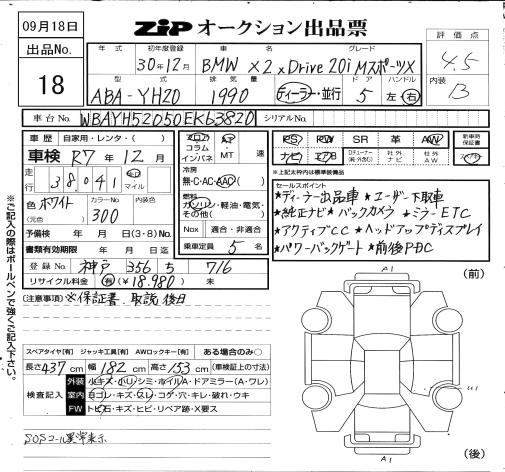 09月18日
ZiP オークション出品票
出品No.
18
年式 初年度登録 車名 グレード
30年12月 BMW X2 xDrive 20i MスポーツX
型式 排気量 ドア ハンドル
ABA-YH20 1990 ディーラー・並行 5 左 右
評価点
4.5
内装
B
車台No. WBAYH52050EK63820 シリアルNo.
車歴 自家用・レンタ・( )
車検 R7年12月
走行 38,041 km マイル
色 ホワイト カラーNo. 300 内装色
(元色)
予備検 年 月 日(3・8)No.
書類有効期限 年 月 日迄
登録No. 神戸 356 ち 716
リサイクル料金 有(¥18,980) 未
フロア コラム インパネ
AT MT 速
冷房
無・C・AC・AAC( )
燃料
ガソリン・軽油・電気・その他( )
Nox 適合・非適合
乗車定員 5 名
PS PW SR 革 AW
ナビ エアB 社外ナビ 社外AW
新車時保証書
※上記太枠内は標準装備品
セールスポイント
★ディーラー出品車 ★ユーザー下取車
★純正ナビ ★バックカメラ ★ミラーETC
★アクティブCC ★ヘッドアップディスプレイ
★パワーバックゲート ★前後PDC
(注意事項) ※保証書、取説 後日
※ご記入の際はボールペンで強くご記入下さい。
スペアタイヤ[有] ジャッキ工具[有] AWロックキー[有] ある場合のみ○
長さ 437cm 幅 182cm 高さ 153cm (車検証上の寸法)
検査記入
外装 小キズ・小凹・シミ・ホイルA・ドアミラー(A・ワレ)
室内 ヨゴレ・キズ・スレ・コゲ・穴・キレ・破れ・ウキ
FW トビ石・キズ・ヒビ・リペア跡・X要ス
SOSコール異常表示
(前)
A1
U1
A1
(後)